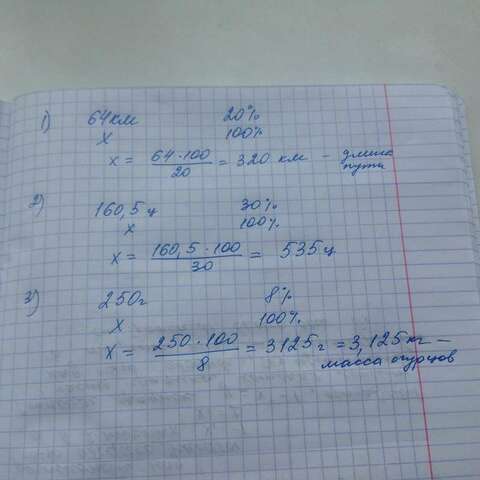 1) 64 км 20%
х 100%
х = 64·100/20 = 320 км – длина пути
2) 160,5 ц 30%
х 100%
х = 160,5·100/30 = 535 ц
3) 250 г 8%
х 100%
х = 250·100/8 = 3125 г = 3,125 кг –
масса огурцов